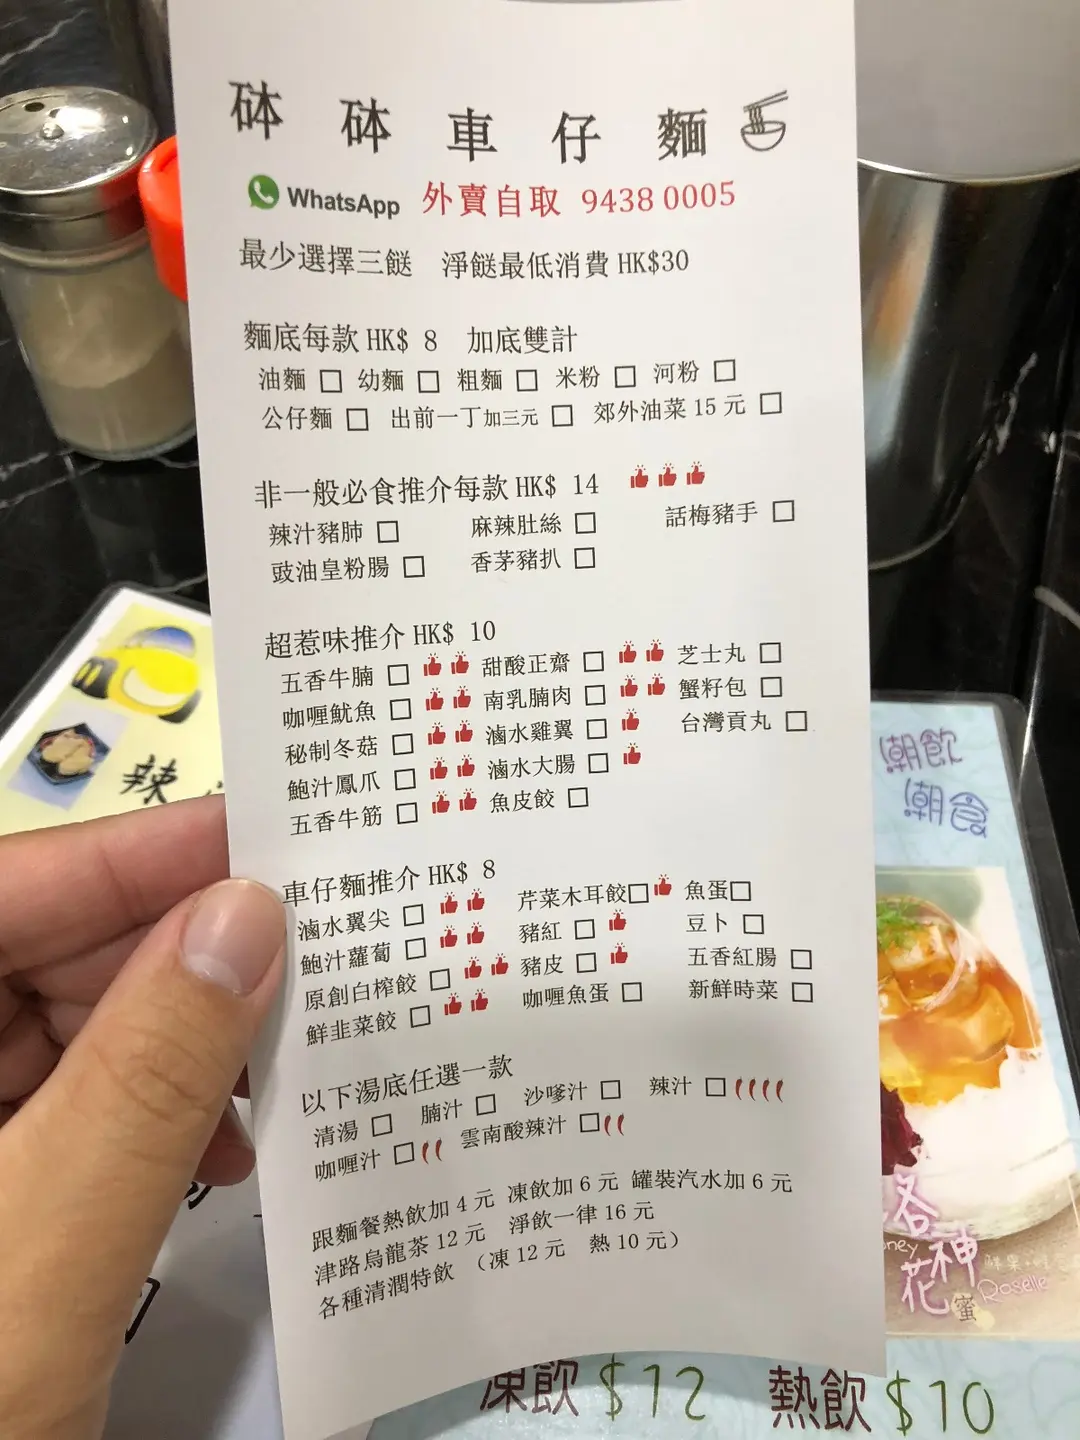 砵砵車仔麵
WhatsApp 外賣自取 9438 0005
最少選擇三餸 淨餸最低消費 HK$30
麵底每款 HK$ 8 加底雙計
油麵 □ 幼麵 □ 粗麵 □ 米粉 □ 河粉 □
公仔麵 □ 出前一丁加三元 □ 郊外油菜 15 元 □
非一般必食推介每款 HK$ 14
辣汁豬肺 □ 麻辣肚絲 □ 話梅豬手 □
豉油皇粉腸 □ 香茅豬扒 □
超惹味推介 HK$ 10
五香牛腩 □ 甜酸正齋 □ 芝士丸 □
咖喱魷魚 □ 南乳腩肉 □ 蟹籽包 □
秘制冬菇 □ 滷水雞翼 □ 台灣貢丸 □
鮑汁鳳爪 □ 滷水大腸 □
五香牛筋 □ 魚皮餃 □
車仔麵推介 HK$ 8
滷水翼尖 □ 芹菜木耳餃□ 魚蛋□
鮑汁蘿蔔 □ 豬紅 □ 豆卜 □
原創白榨餃 □ 豬皮 □ 五香紅腸 □
鮮韭菜餃 □ 咖喱魚蛋 □ 新鮮時菜 □
以下湯底任選一款
清湯 □ 腩汁 □ 沙嗲汁 □ 辣汁 □
咖喱汁 □ 雲南酸辣汁 □
跟麵餐熱飲加 4 元 凍飲加 6 元 罐裝汽水加 6 元
津路烏龍茶 12 元 淨飲一律 16 元
各種清潤特飲 （凍 12 元 熱 10 元）
辣
潮飲
潮食
洛神
花
蜜
Roselle
凍飲 $12 熱飲 $10